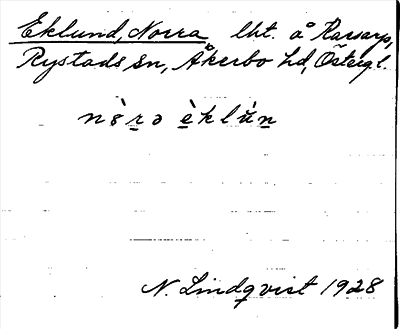 Eklund, Norra lht. å Rarsarp,
Rystads sn, Åkerbo hd, Östergl.
N. Lindqvist 1928